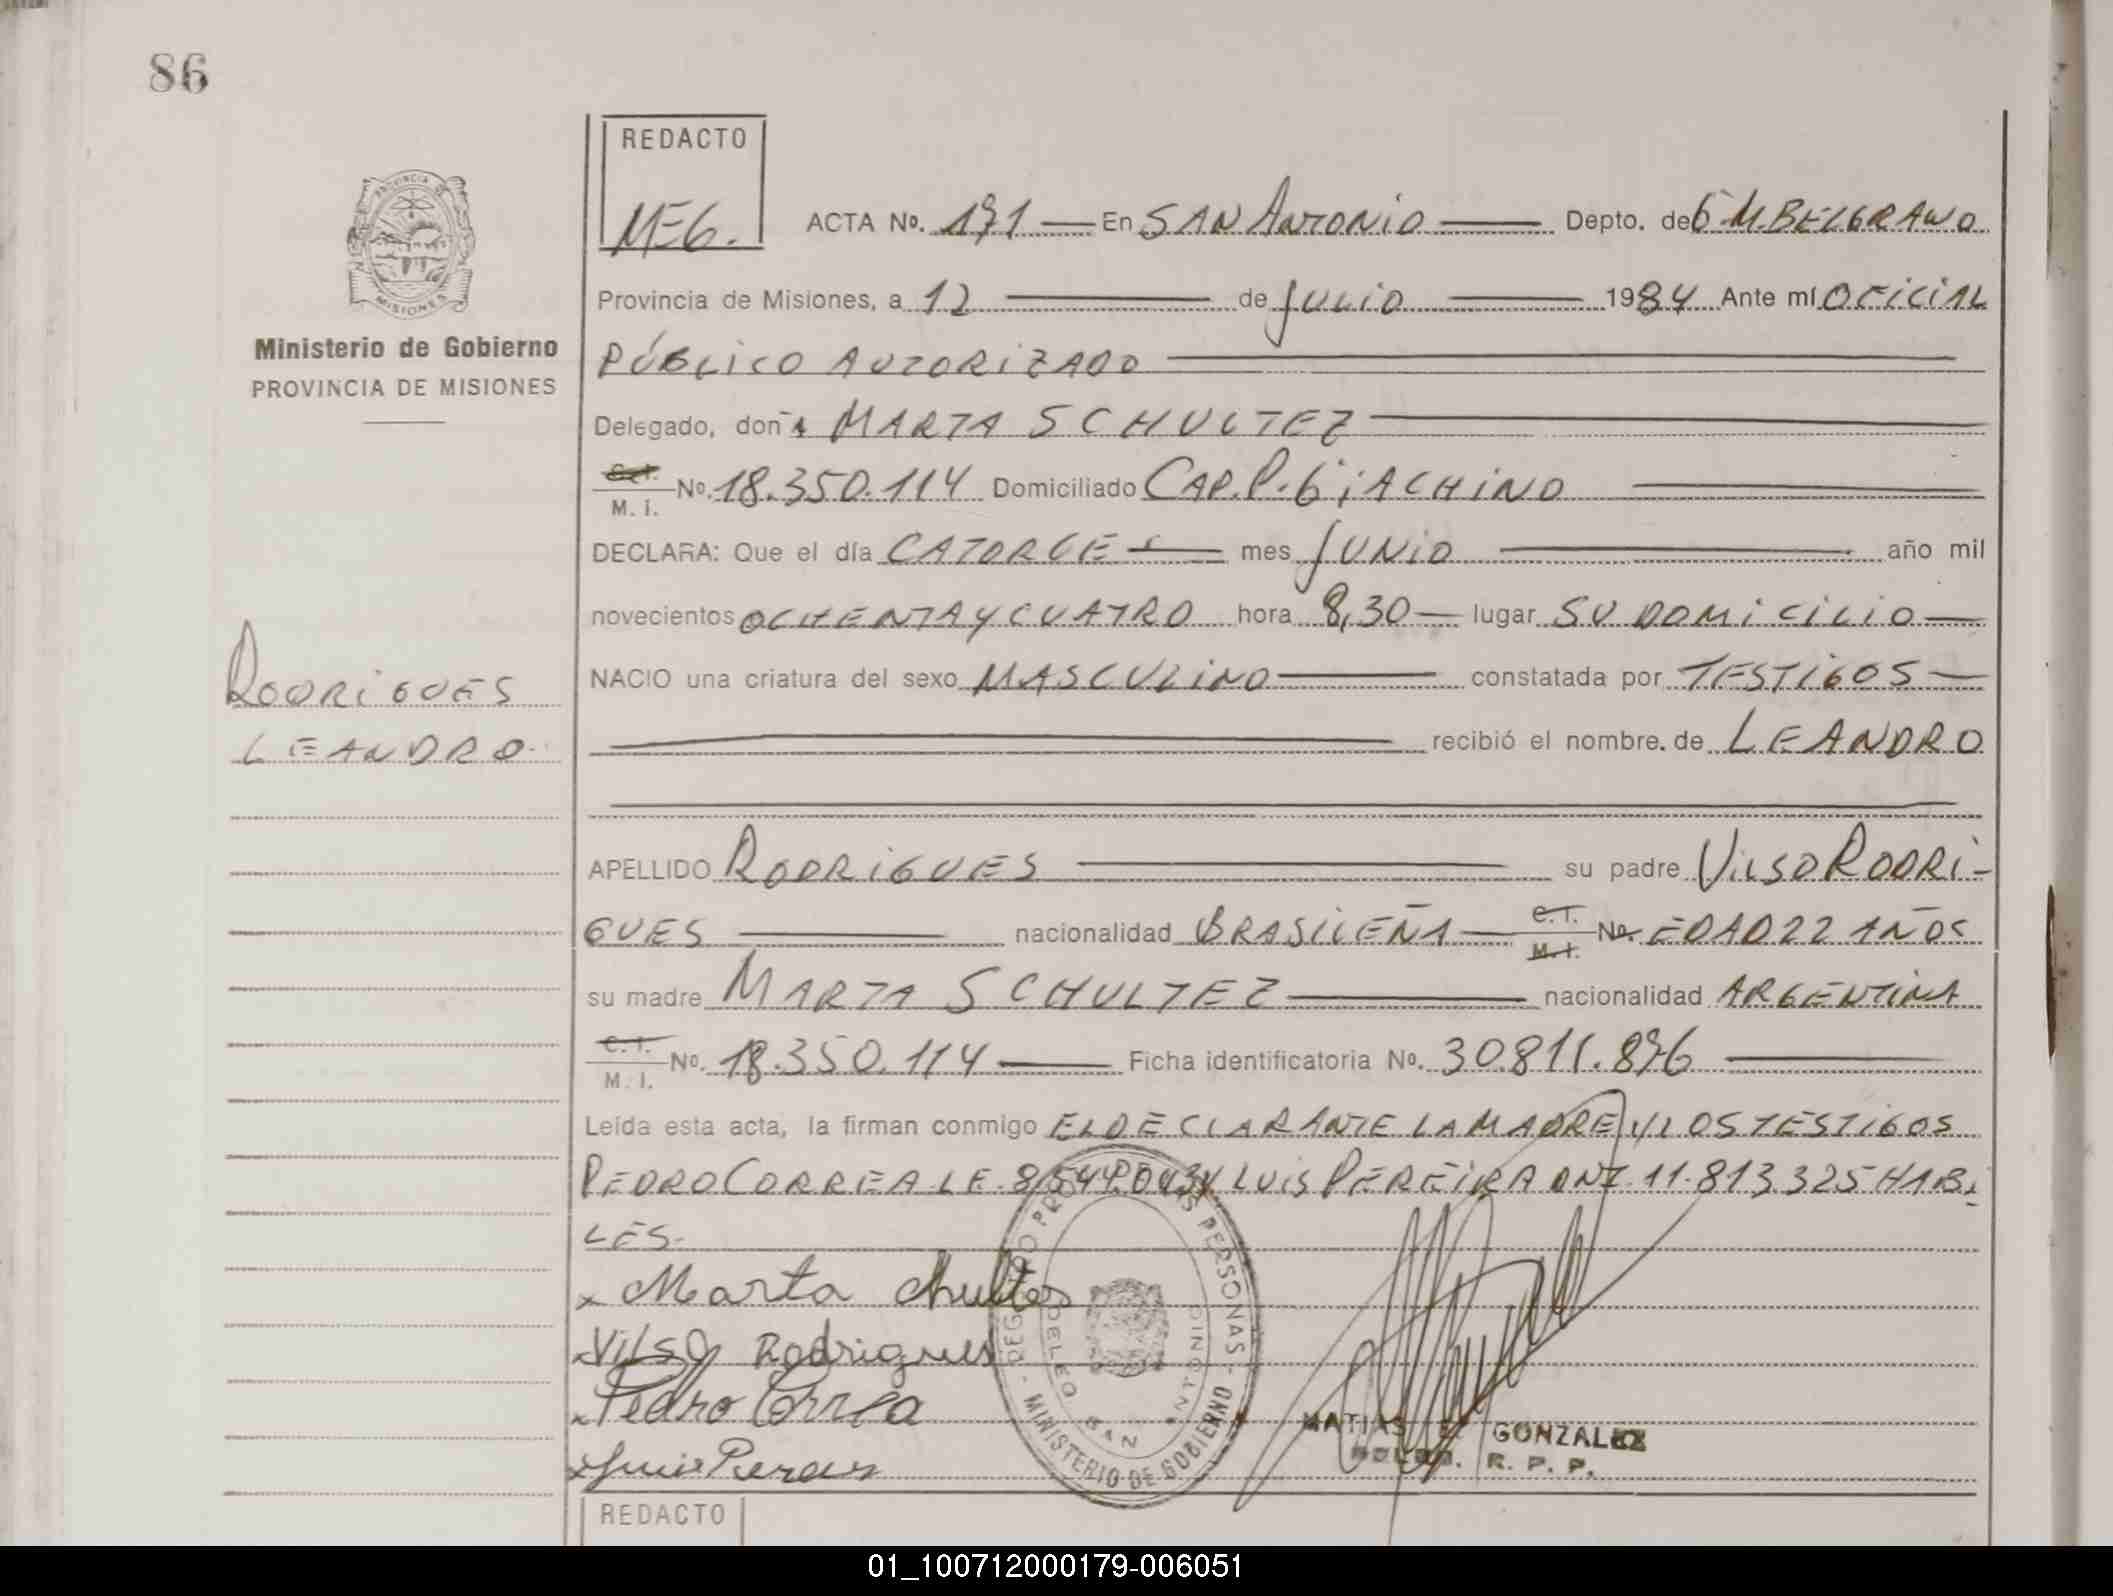 86
REDACTO
MEG.
ACTA No. 171 En SAN ANTONIO Depto. de G M. BELGRANO
PROVINCIA DE MISIONES
Ministerio de Gobierno
PROVINCIA DE MISIONES
Provincia de Misiones, a 12 de JULIO 1984 Ante mí OFICIAL
PÚBLICO AUTORIZADO
Delegado, doña MARTA SCHULTEZ
C.I. M. I. No. 18.350.114 Domiciliado CAP. P. GIACHINO
DECLARA: Que el día CATORCE mes JUNIO año mil
novecientos OCHENTA Y CUATRO hora 8,30 lugar SU DOMICILIO
NACIO una criatura del sexo MASCULINO constatada por TESTIGOS
RODRIGUES
LEANDRO
recibió el nombre. de LEANDRO
APELLIDO RODRIGUES su padre VILSO RODRI-
GUES nacionalidad BRASILEÑA C.I. M.I. No. EDAD 22 AÑOS
su madre MARTA SCHULTEZ nacionalidad ARGENTINA
C.I. M. I. No. 18.350.114 Ficha identificatoria No. 30.811.876
Leída esta acta, la firman conmigo EL DECLARANTE LA MADRE Y LOS TESTIGOS
PEDRO CORREA L.E. LUIS PEREIRA DNI 11.813.325 HABI
LES.
x Marta Chultes
x Vilso Rodrigues
x Pedro Correa
x Luis
REGISTRO DE LAS PERSONAS - MINISTERIO DE GOBIERNO -
SAN ANTONIO
MATIAS E. GONZALEZ
R. P. P.
REDACTO
01_100712000179-006051